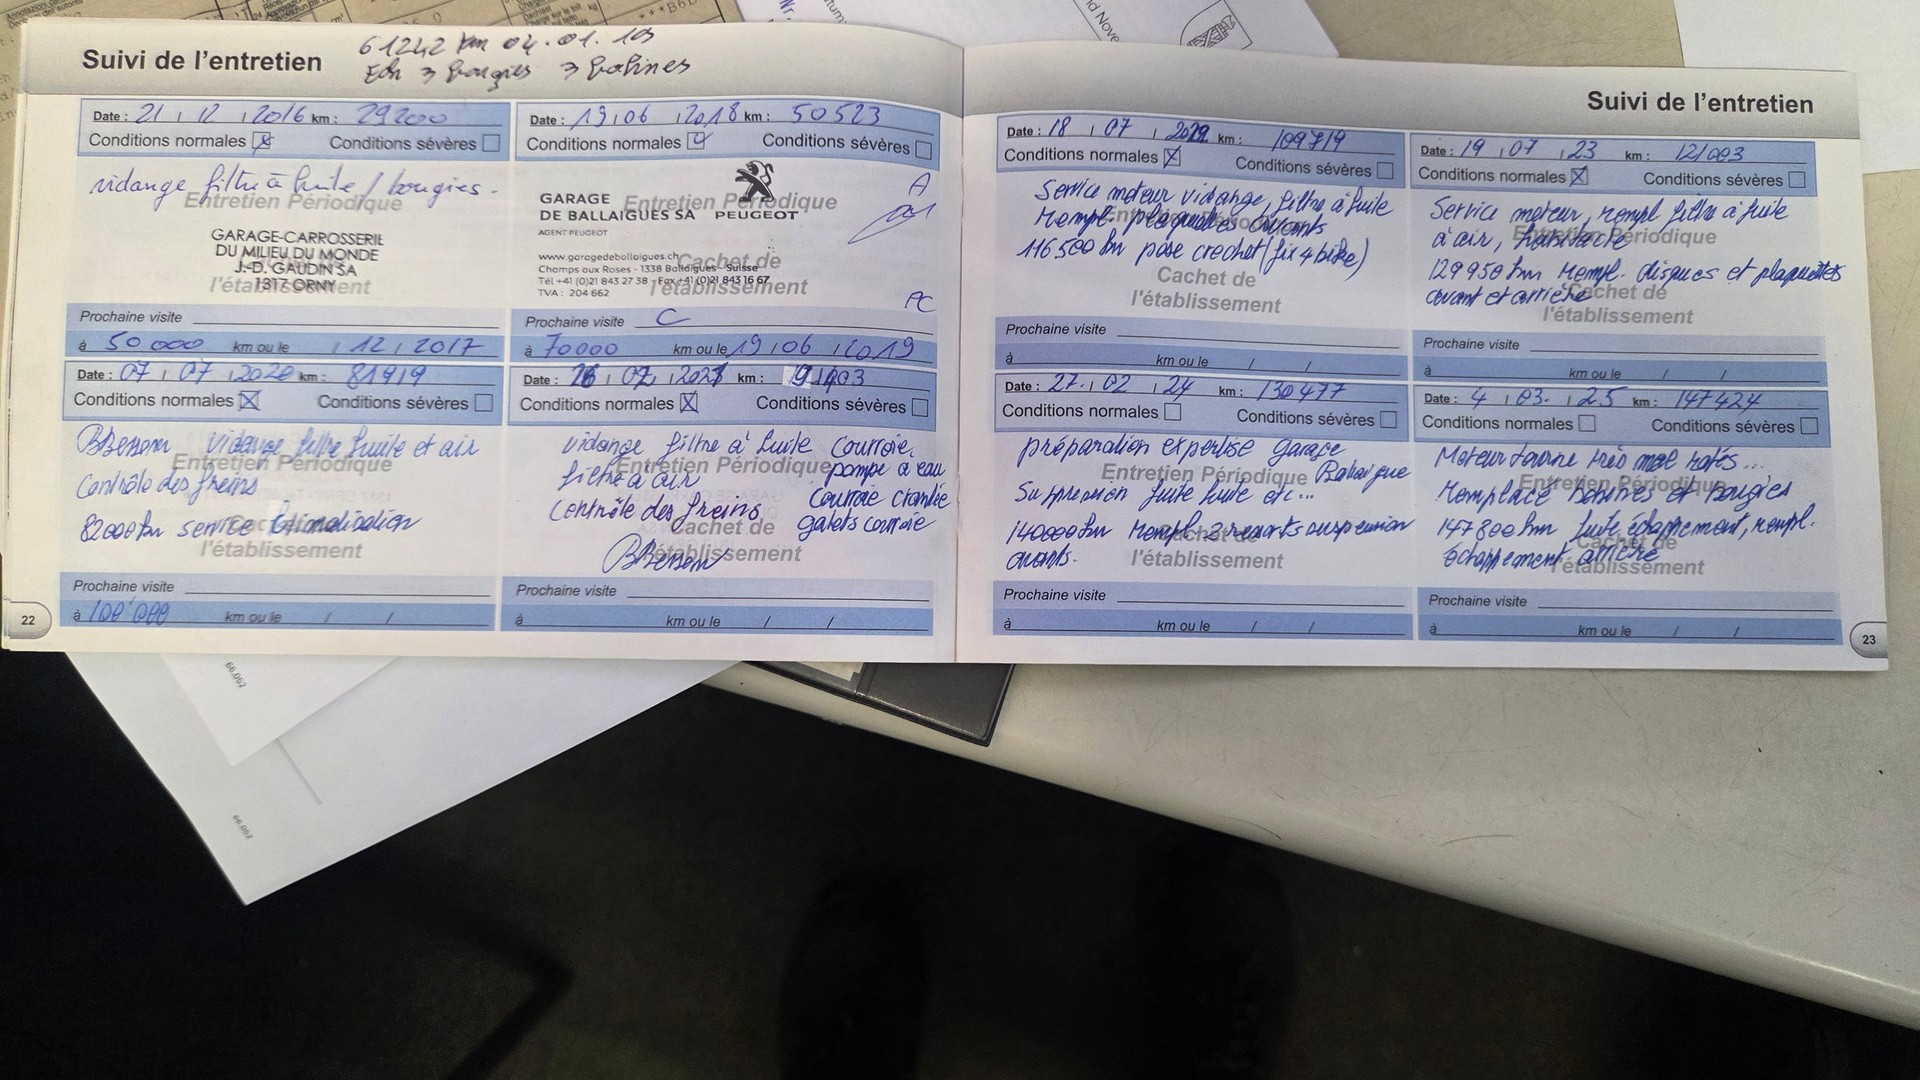 Suivi de l'entretien
61242 km 04.01.19
Ech 3 bougies 3 bobines
Date : 21 12 2016 km : 29200
Conditions normales Conditions sévères
vidange filtre à huile / bougies.
Entretien Périodique
GARAGE-CARROSSERIE
DU MILIEU DU MONDE
J.-D. GAUDIN SA
1317 ORNY
l'établissement
Prochaine visite
à 50 000 km ou le 12 2017
Date : 19 06 2018 km : 50523
Conditions normales Conditions sévères
GARAGE
DE BALLAIGUES SA PEUGEOT
AGENT PEUGEOT
Entretien Périodique
A
www.garagedeballaigues.ch
Champs aux Roses - 1338 Ballaigues - Suisse
Tél +41 (0)21 843 27 38 Fax +41 (0)21 843 16 67
TVA : 204 662
Cachet de
l'établissement
PC
Prochaine visite C
à 70000 km ou le 19 06 2019
Date : 07 07 2020 km : 81919
Conditions normales Conditions sévères
vidange filtre huile et air
Entretien Périodique
Contrôle des freins
82000 km service climatisation
Cachet de
l'établissement
Prochaine visite
à 100'000 km ou le / /
Date : 16 02 2021 km :
Conditions normales Conditions sévères
vidange filtre à huile courroie
Entretien Périodique pompe à eau
filtre à air courroie crantée
Contrôle des freins galets courroie
Cachet de
l'établissement
Prochaine visite
à km ou le / /
22
Suivi de l'entretien
Date : 18 07 2022 km : 109719
Conditions normales Conditions sévères
Service moteur vidange, filtre à huile
Rempl. plaquettes avants
Entretien Périodique
116.500 km pose crochet (fix 4 bike)
Cachet de
l'établissement
Prochaine visite
à km ou le / /
Date : 19 07 23 km : 121003
Conditions normales Conditions sévères
Service moteur, rempl filtre à huile
à air, habitacle
Entretien Périodique
129950 km Rempl. disques et plaquettes
avant et arrière
Cachet de
l'établissement
Prochaine visite
à km ou le / /
Date : 27. 02 24 km : 130477
Conditions normales Conditions sévères
préparation expertise garage
Entretien Périodique
Suppression fuite huile etc...
140000 km Rempl 2 ressorts suspension
avants.
Cachet de
l'établissement
Prochaine visite
à km ou le / /
Date : 4 03. 25 km : 147424
Conditions normales Conditions sévères
Moteur tourne très mal ratés...
Entretien Périodique
Remplacé bobines et bougies
147800 km fuite échappement, rempl.
échappement arrière
Cachet de
l'établissement
Prochaine visite
à km ou le / /
23
66.062
66.062